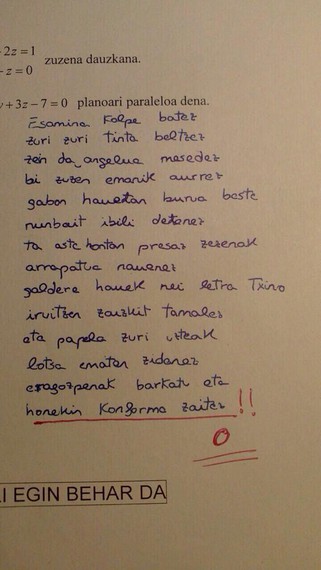 2z = 1
- z = 0 zuzena dauzkana.
y + 3z − 7 = 0 planoari paraleloa dena.
Esamina kolpe batez
zuri zuri tinta beltzez
zein da angelua mesedez
bi zuzen emanik aurrez
gabon hauetan burua beste
nunbait ibili detanez
ta aste hontan presaz zezenak
arrapatua nauenez
galdera hauek nei letra Txino
iruitzen zauzkit tamalez
eta papela zuri uzteak
lotsa ematen zidanez
eragozpenak barkatu eta
honekin konforma zaitez!!
0
I EGIN BEHAR DA